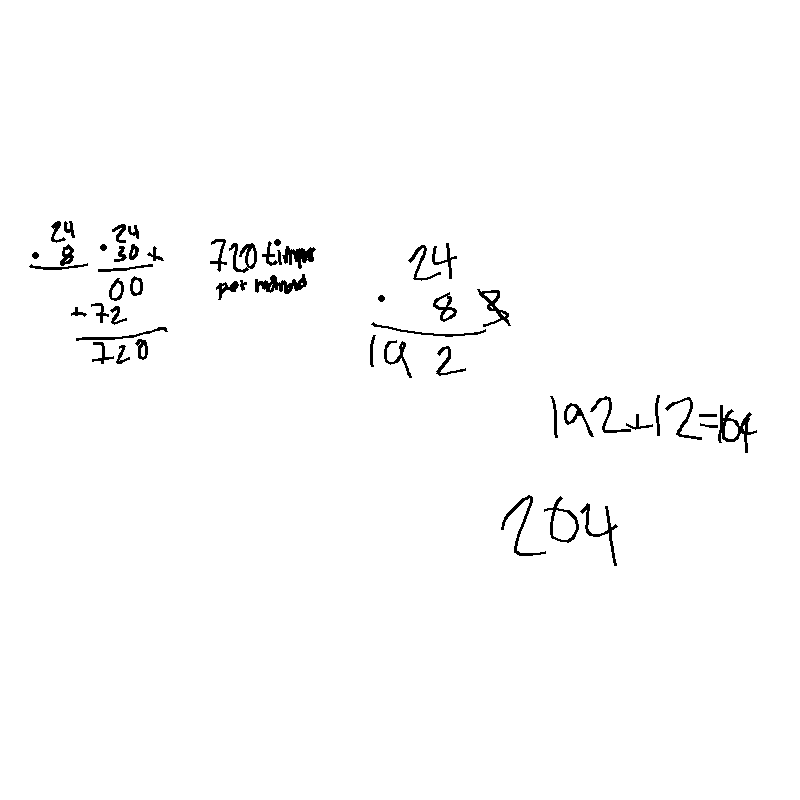 24
· 8
24
· 30 +
00
+72
720
720 times
per
24
· 8
192
192+12=164
204